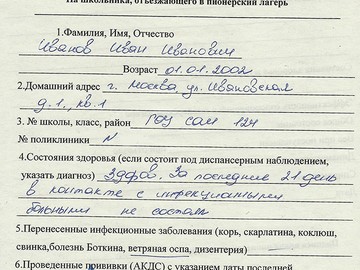 На школьника, отъезжающего в пионерский лагерь
1.Фамилия, Имя, Отчество
Иванов Иван Иванович
Возраст 01.01.2002
2.Домашний адрес г. Москва, ул. Ивановская
д.1, кв.1
3. № школы, класс, район ГОУ СОШ 124
№ поликлиники N
4.Состояния здоровья (если состоит под диспансерным наблюдением,
указать диагноз) Здоров. За последние 21 день
в контакте с инфекционными
больными не состоял
5.Перенесенные инфекционные заболевания (корь, скарлатина, коклюш,
свинка,болезнь Боткина, ветряная оспа, дизентерия)
6.Проведенные прививки (АКДС) с указанием даты последней